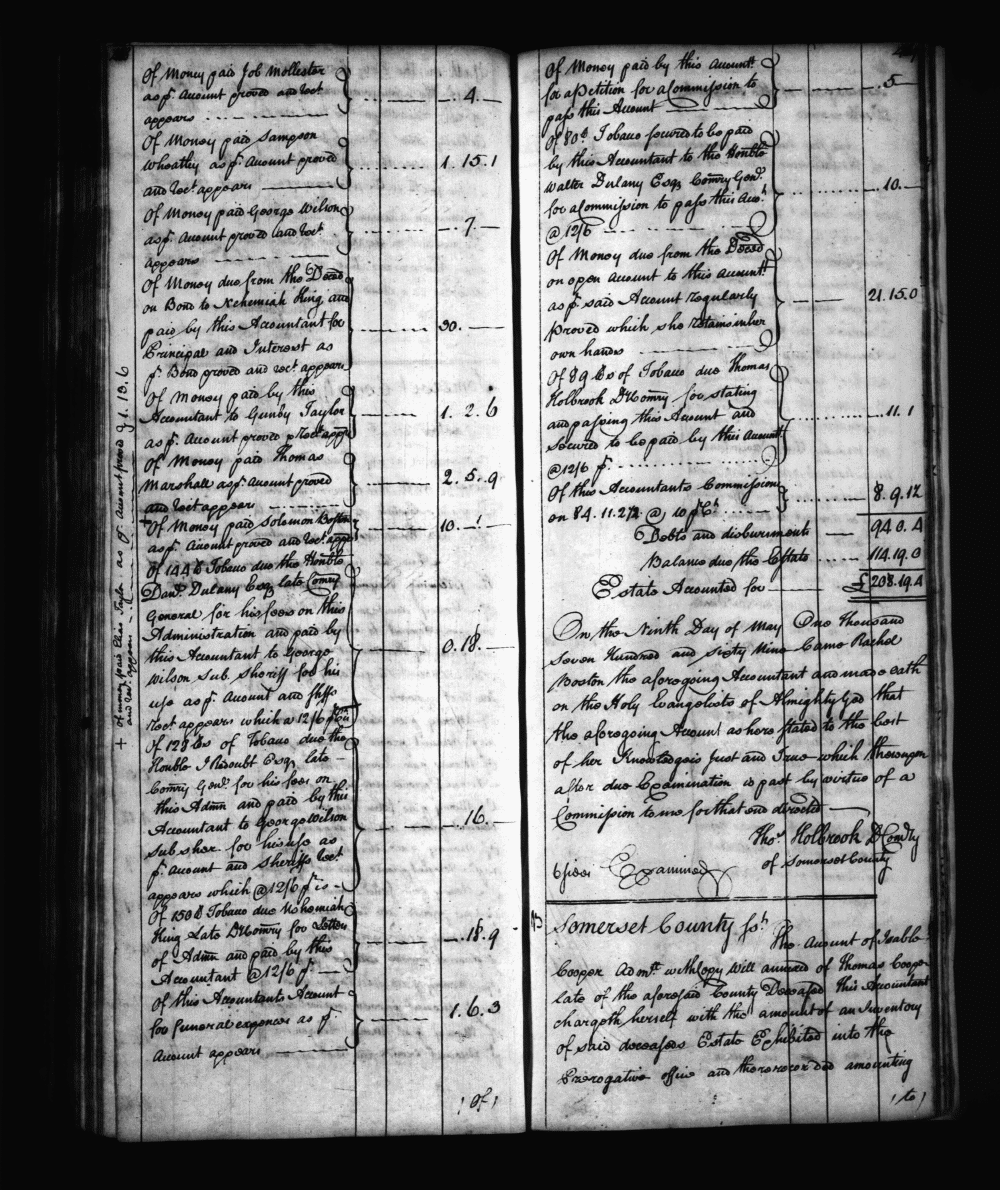 Of Money paid Job Mollester
as pr. Account proved and rect.
appears 4.
Of Money paid Sampson
Wheatly as pr. Account proved
and rect. appears 1. 15. 1
Of Money paid George Wilson
as pr. Account proved and rect.
appears 7.
Of Money due from the Deced
on Bond to Nehemiah King, and
paid by this Accountant for
Principal and Interest as
pr. Bond proved and rect. appears 30.
Of Money paid by this
Accountant to Gunby Taylor
as pr. Account proved & rect. app 1. 2. 6
Of Money paid Thomas
Marshall as pr. Account proved
and rect. appears 2. 5. 9
+ Of Money paid Solomon Boston
as pr. Account proved and rect. app 10.
Of 144 lb Tobaco due the Honble
Danl. Dulany Esqr. late Comry
General for his fees on this
Administration and paid by
this Accountant to George
Wilson Sub. Sheriff for his
use as pr. Account and shffs
rect. appears which a 12/6 0. 18.
Of 128 lbs of Tobaco due the
Honble J Risoubt Esqr. late
Comry Genl. for his fees on
this Admn and paid by this
Accountant to George Wilson
Sub sher for his use as
pr. Account and sheriffs rect.
appears which @ 12/6 pr. is 16.
Of 150 lb Tobaco due Nehemiah
King Late D Comry for Letters
of Admn and paid by this
Accountant @ 12/6 pr. 18. 9
Of this Accountants Account
for funeral expences as pr.
Account appears 1. 6. 3
Of
+ Of money paid Elias Taylor as pr account proved 1. 13. 6
and rect. appears
Of Money paid by this Accountt.
for a Petition for a Commission to
pass this Account 5
Of 80 lb Tobaco secured to be paid
by this Accountant to the Honble
Walter Dulany Esqr. Comry Genl.
for a Commission to pass this Acct.
@ 12/6 10.
Of Money due from the Deced
on open Account to this Accountt.
as pr. said Account regularly
proved which she retains in her
own hands 21. 15. 0
Of 89 lbs of Tobaco due Thomas
Holbrook D Comry for stating
and passing this Account and
secured to be paid by this Account
@ 12/6 pr. 11. 1
Of this Accountants Commission
on 84. 11. 2¾ @ 10 pr Ct. 8. 9. 1½
Debts and disbursments 94 0. 4
Balance due the Estate 114. 19. 0
Estate Accounted for £ 208. 19. 4
On the Ninth Day of May One Thousand
Seven Hundred and Sixty Nine Came Rachel
Boston the aforegoing Accountant and made oath
on the Holy Evangelists of Almighty God that
the aforegoing Account as here stated to the best
of her Knowledge is Just and True which thereupon
after due Examination is past by virtue of a
Commission to me for that end directed
Thos. Holbrook D Comry
of Somerset County
Examined
Somerset County ss.
The Account of Isable
Cooper Admx. with Copy Will annexed of Thomas Cooper
late of the aforesaid County Deceased this Accountant
chargeth herself with the amount of an Inventory
of said deceaseds Estate Exhibited into the
Prerogative office and there recorded amounting
to